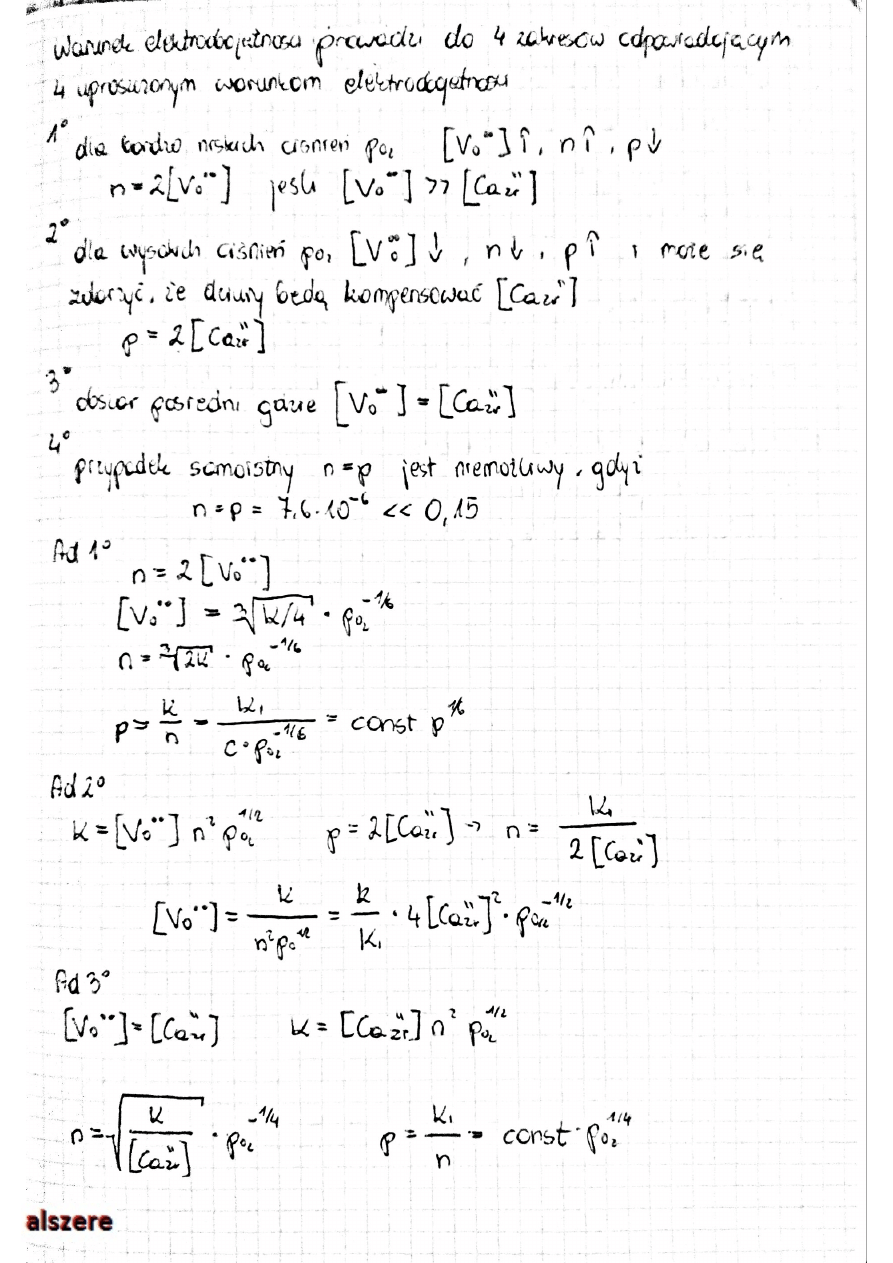 Warunek elektroobojętności prowadzi do 4 zakresów odpowiadającym
4 uproszczonym warunkom elektroobojętności
1° dla bardzo niskich ciśnień pO₂ [Vo¨]↑, n↑, p↓
n = 2[Vo¨] jeśli [Vo¨] >> [Ca"zr]
2° dla wysokich ciśnień pO₂ [Vo¨]↓, n↓, p↑ i może się
zdarzyć, że dziury będą kompensować [Ca"zr]
p = 2[Ca"zr]
3° obszar pośredni gdzie [Vo¨] = [Ca"zr]
4° przypadek samoistny n = p jest niemożliwy, gdyż
n = p = 7,6·10⁻⁶ << 0,15
Ad 1°
n = 2[Vo¨]
[Vo¨] = ∛(K/4) · pO₂^(-1/6)
n = ∛(2K) · pO₂^(-1/6)
p = K/n = K₁/(C·pO₂^(-1/6)) = const p^(1/6)
Ad 2°
K = [Vo¨] n² pO₂^(1/2) p = 2[Ca"zr] → n = K₁/(2[Ca"zr])
[Vo¨] = K/(n² pO^(1/2)) = K/K₁ · 4[Ca"zr]² · pO₂^(-1/2)
Ad 3°
[Vo¨] = [Ca"zr] K = [Ca"zr] n² pO₂^(1/2)
n = √(K/[Ca"zr]) · pO₂^(-1/4) p = K₁/n = const · pO₂^(1/4)
alszere